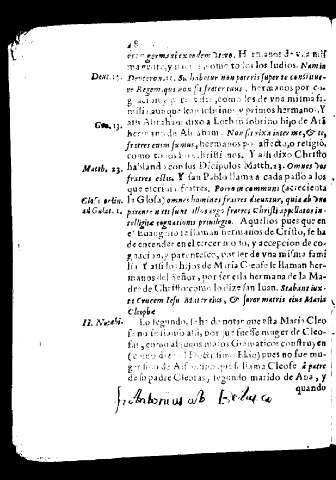 48
eran germani ex eodem utero. Hermanos de una mis
ma gente, y como todos los Iudios. Nam in
Deut. 17. Deuteron. 17. habetur non poteris super te constituere
Regem, qui non sit frater tuus, hermanos por cog
nacion y parentesco, como les de una misma fa
milia aunque sean sobrinos y primos hermanos. Y
assi Abraham dixo a Loth su sobrino hijo de Ará
Gen. 13. hermano de Abraham. Non sit rixa inter me, & te,
fratres enim sumus, hermanos por affecto, o religió,
como todos los christianos. Y assi dixo Christo
Matth. 23. hablando con sus Dicipulos Matth. 23. Omnes vos
fratres estis. Y san Pablo llama a cada passo a los
que escrivia fratres. Porro in communi (acrecienta
Glose ordin. la Glosa) omnes homines fratres dicuntur, quia ab uno
ad Galat. 1. parente nati sunt. Illos ergo fratres Christi appellatos in
telligite cognationis privilegio. Aquellos pues que en
el Euangelio se llaman hermanos de Cristo, se ha
de entender en el tercer modo, y accepcion de cog
nacion, y parentesco, por ser de una misma fami
lia. Y assi los hijos de Maria Cleofe se llaman her
manos del Señor, por ser ella hermana de la Ma
dre de Christo como lo dize san Iuan. Stabant iux
ta Crucem Iesu Mater eius, & soror matris eius Maria
Cleophe
II. Notabi. Lo segundo, se ha de notar que esta Maria Cleo
fe no se llamo assi, por que fuesse muger de Cleo
fas, como algunos malos Gramaticos construyen
pues no fue mu
ger sino de Alfeo, sino que se llama Cleofe à patre
de su padre Cleofas, segundo marido de Ana, y
quando